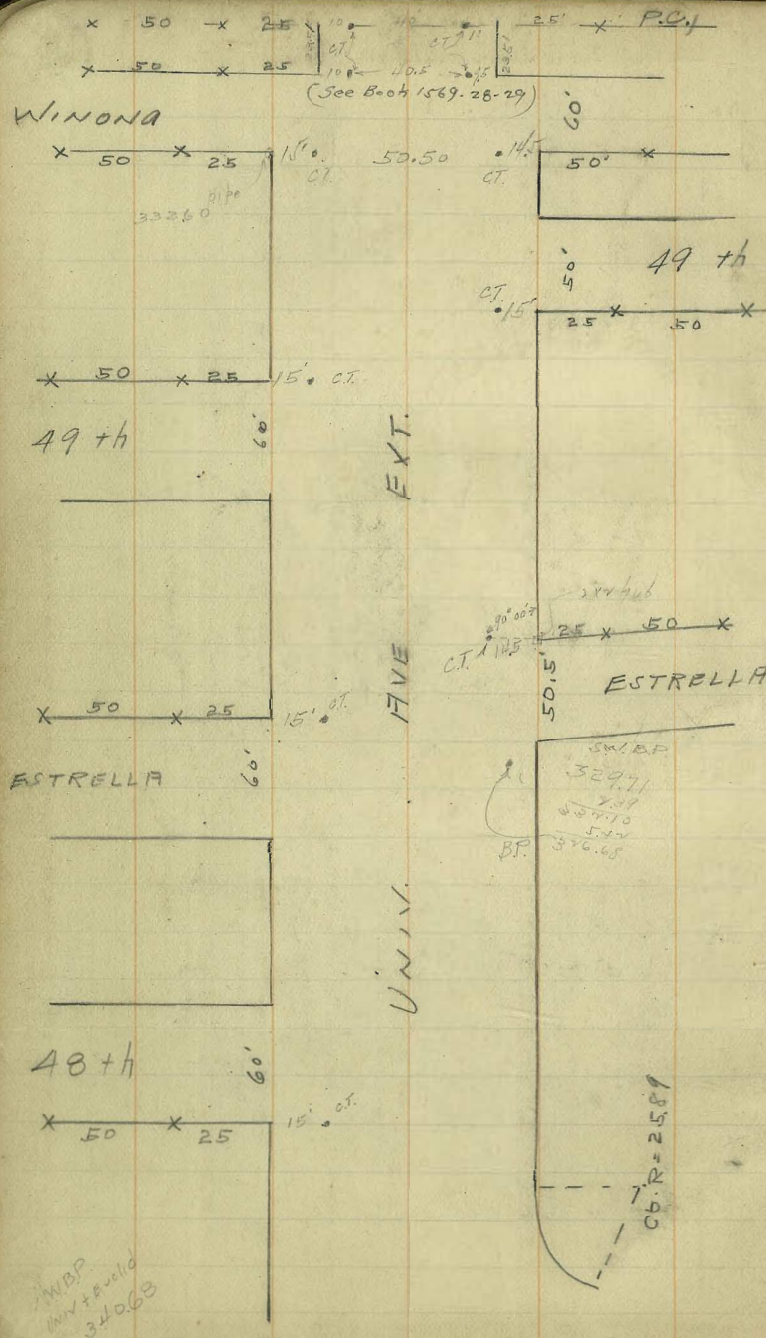 50 25 10 40 11 25' P.C.
C.T. C.T.
50 25 10 40.5 15
(See Book 1569-28-29)
WINONA 60'
50 25 15' 50.50 14.5 50'
C.T. C.T.
pipe
332.60
50' 49 th
C.T. 15' 25 50
50 25 15' C.T.
49 th 60'
UNIV. AVE EXT.
2x2 hub
90°00'
25 50
C.T. 14.5
50.5' ESTRELLA
50 25 15' C.T.
ESTRELLA 60'
SW. B.P.
329.71
337.10
5.42
B.P. 326.68
48 th 60'
50 25 15' C.T.
Cb. R = 25.89
NW.BP
Univ + Euclid
340.68